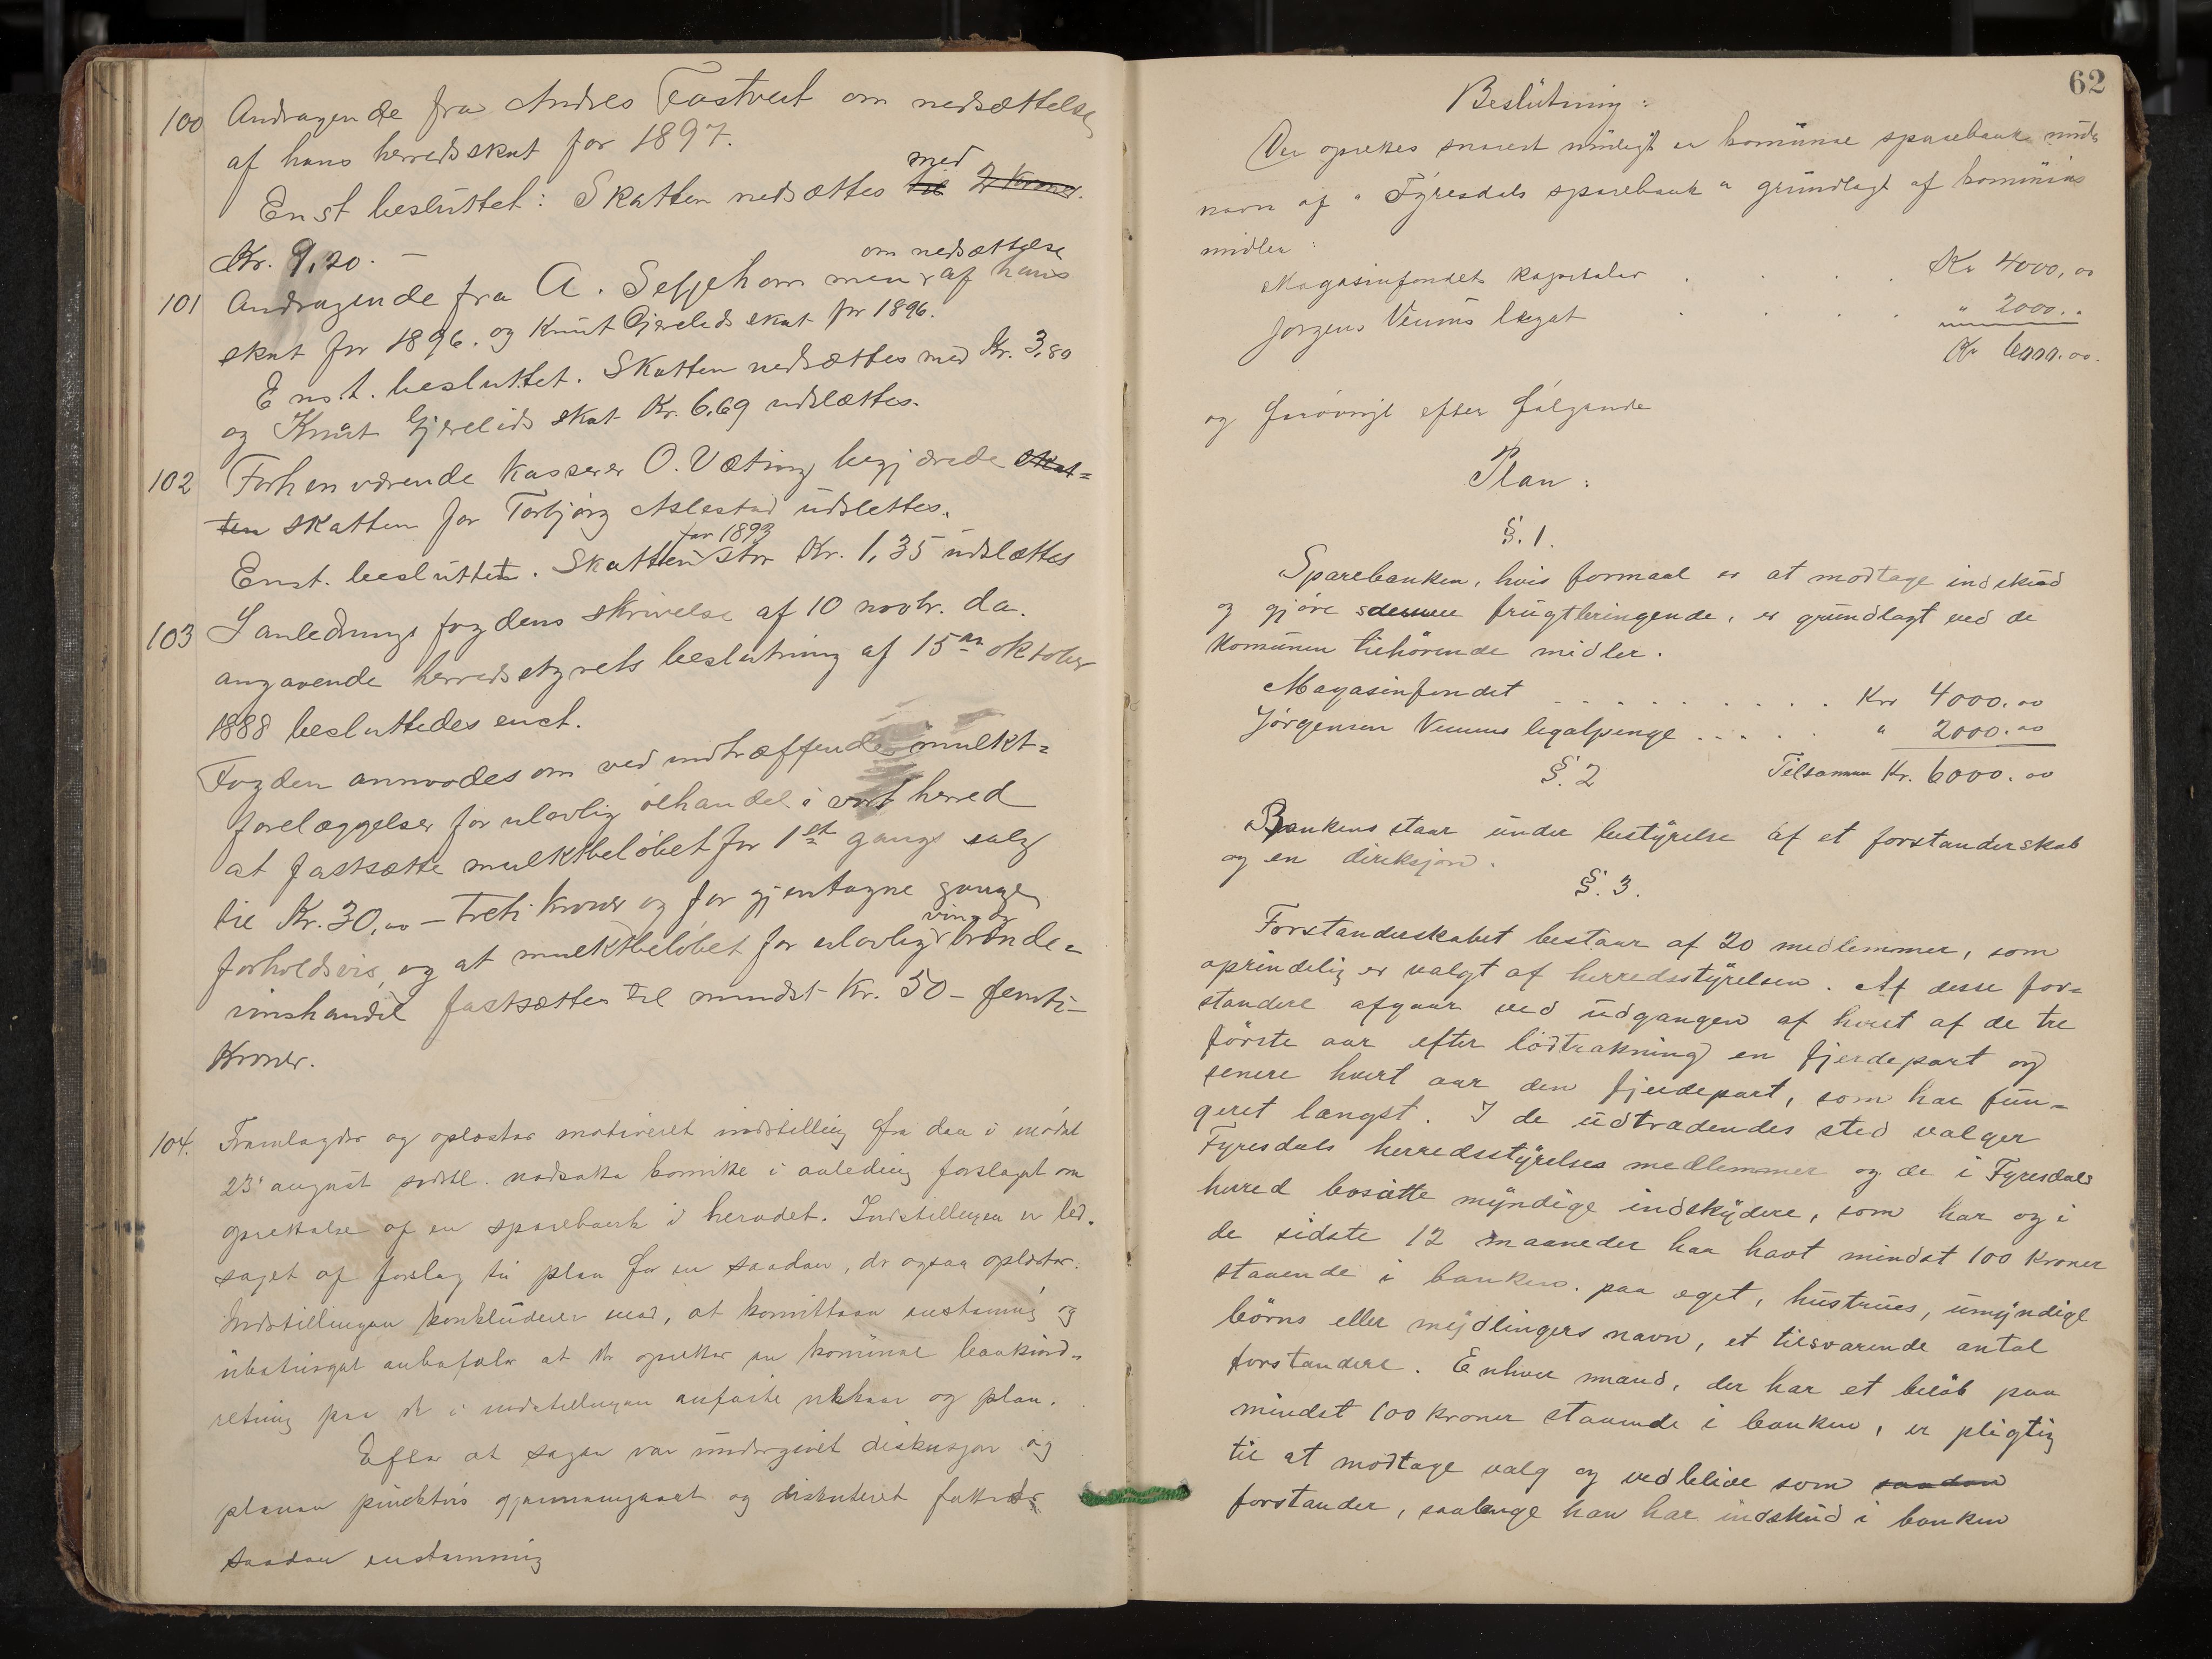 100 Andragende fra Andres Tostveit om nedsættelse
af hans herredsskat for 1897.
Enst besluttet: Skatten nedsættes til med 2 Kroner.
Kr. 9,20. —
101 Andragende fra A. men om nedsættelse af hans
skat for 1896. og Knut Gjerelids skat for 1896.
Enst. besluttet. Skatten nedsættes med Kr. 3,80
og Knut Gjerelids skat Kr. 6,69 udslættes.
102 Forhenværende Kasserer O. Væting begjærede skat=
ten skatten for Torbjørg Aslestad udslettes.
Enst. besluttet. Skatten for 1893 stor Kr. 1,35 udslættes
103 I anledning fogdens skrivelse af 10 novbr. d.a.
angaaende herredsstyrets beslutning af 15de oktober
1888 besluttedes enst.
Fogden anmodes om ved indtræffende mulkt=
forelæggelser for ulovlig ölhandel i vort herred
at fastsætte mulktbelöbet for 1ste gangs salg
til Kr. 30,00 — Treti kroner og for gjentagne gange
forholdsvis, og at mulktbelöbet for ulovlig vin og brænde=
vinshandel fastsættes til mindst Kr. 50 — femti —
Kroner.
104. Framlagdes og oplæstes motiveret indstilling fra den i mödet
23' august sidstl. nedsatte komite i anledning forslaget om
oprettelse af en sparebank i heredet. Indstillingen er led.
saget af forslag til plan for en saadan, der ogsaa oplæstes.
Indstillingen konkluderer med, at komitteen enstemmig og
ubetinget anbefaler at der oprettes en komunal bankind-
retning paa de i indstillingen anförte vilkaar og plan.
Efter at sagen var undergivet diskusjon og
planen punktvis gjennemgaaet og diskuteret fattedes
saadan enstemmig
62
Beslutning:
Der oprettes snarest muligt en komunal sparebank under
navn af "Fyresdals sparebank" grundlagt af komunens
midler:
Magasinfondets kapitaler . . . Kr 4000,00
Jorgens Veums legat . . . . " 2000. "
Kr 6000.00.
og forövrigt efter fölgende
Plan:
§. 1.
Sparebanken, hvis formaal er at modtage indskud
og gjöre denne frugtbringende, er grundlagt ved de
Komunen tilhörende midler.
Magasinfondet . . . . . . . . . . Kr 4000.00
Jörgensen Veums legatpenge . . . . . " 2000.00
§. 2 Tilsammen Kr. 6000.00
Bankens staar under bestyrelse af et forstanderskab
og en direksjon.
§. 3.
Forstanderskabet bestaar af 20 medlemmer, som
oprindelig er valgt af herredsstyrelsen. Af disse for=
standere afgaar ved udgangen af hvert af de tre
förste aar efter lodtrækning en fjerdepart og
senere hvert aar den fjerdepart, som har fun=
geret længst. I de udtrædendes sted vælger
Fyresdals herredsstyrelses medlemmer og de i Fyresdals
herred bosatte myndige indskydere, som har og i
de sidste 12 maaneder har havt mindst 100 Kroner
staaende i banken. paa eget, hustrues, umyndige
börns eller myndlingers navn, et tilsvarende antal
forstandere. Enhver mand, der har et belöb paa
mindst 100 kroner staaende i banken, er pligtig
til at modtage valg og vedblive som saadan
forstander, saalænge han har indskud i banken